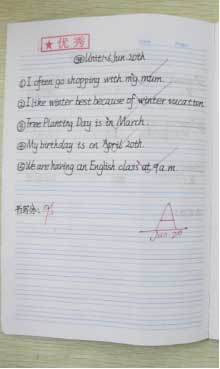 ★优秀
Unit1~6 Jun. 20th
①I often go shopping with my mum.
②I like winter best because of winter vacation.
③Tree Planting Day is in March.
④My birthday is on April 20th.
⑤We are having an English class at 9 a.m.
A
Jun. 20